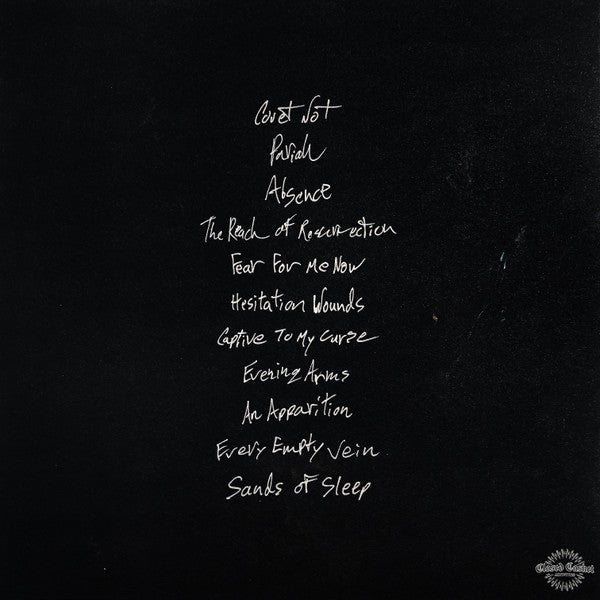 Covet Not
Pariah
Absence
The Reach of Resurrection
Fear For Me Now
Hesitation Wounds
Captive To My Curse
Evening Arms
An Apparition
Every Empty Vein
Sands of Sleep
Closed Casket